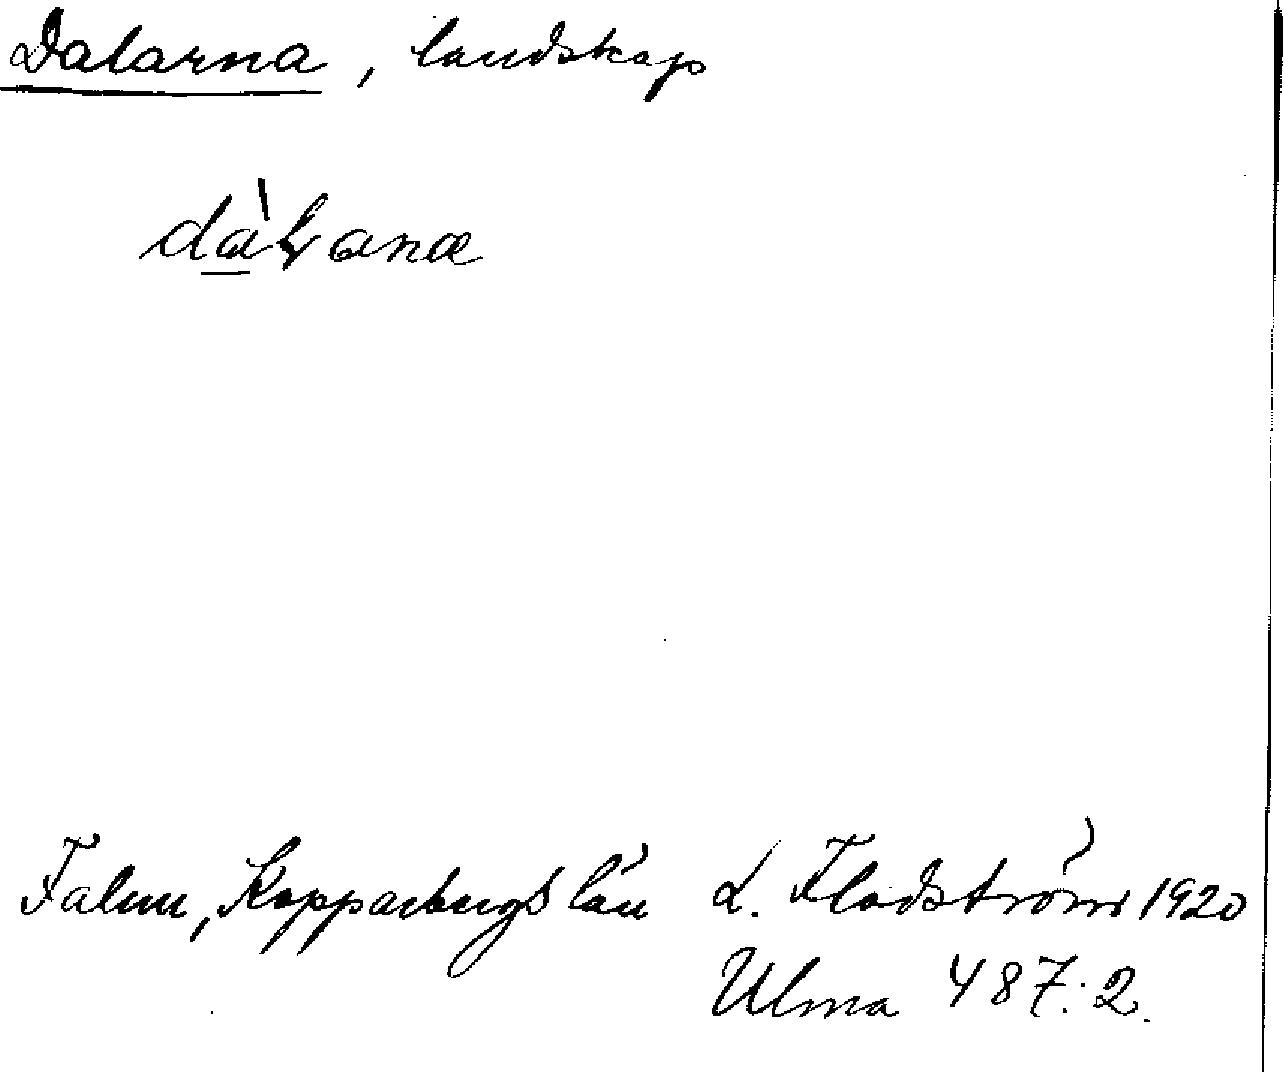 Dalarna, landskap
dàɽana
Falun, Kopparbergs län L. Flodström 1920
Ulma 487:2.